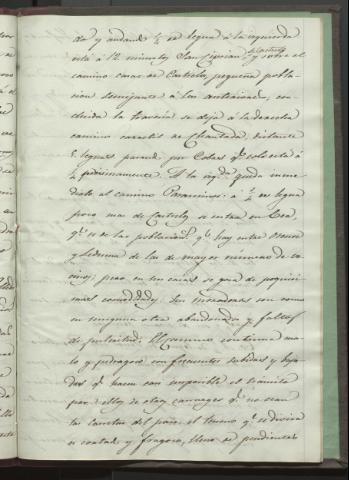 da y andando ¼ de legua á la izquierda
está á 12 minutos San Ciprian y sobre el
camino casas de Castielo, pequeña pobla-
cion semejante á las anteriores, con
cluida la travesia se deja á la derecha
camino carretil de Chantada, distante
5 leguas pasando por Cobas qᵉ solo está á
¼ próximamente. A la izqᵈᵃ queda inme
diato al camino á ¼ de legua
poco mas de Castielo se entra en Cea
qᵉ es de las poblaciones qᵉ hay entre Orense
y Ledesma de las de mayor número de ve
cinos; pero en sus casas se goza de poquisi
mas comodidades. Sus moradores son como
en ninguna otra abandonados y faltos
de pulcritud. El camino continua ma-
lo y pedragoso con frecuentes subidas y baja
das qᵉ hacen casi imposible el tránsito
por ellos de otros carruages qᵉ no sean
las carretas del pais. el terreno qᵉ se divisa
es cortado y fragoso, lleno de pendientes